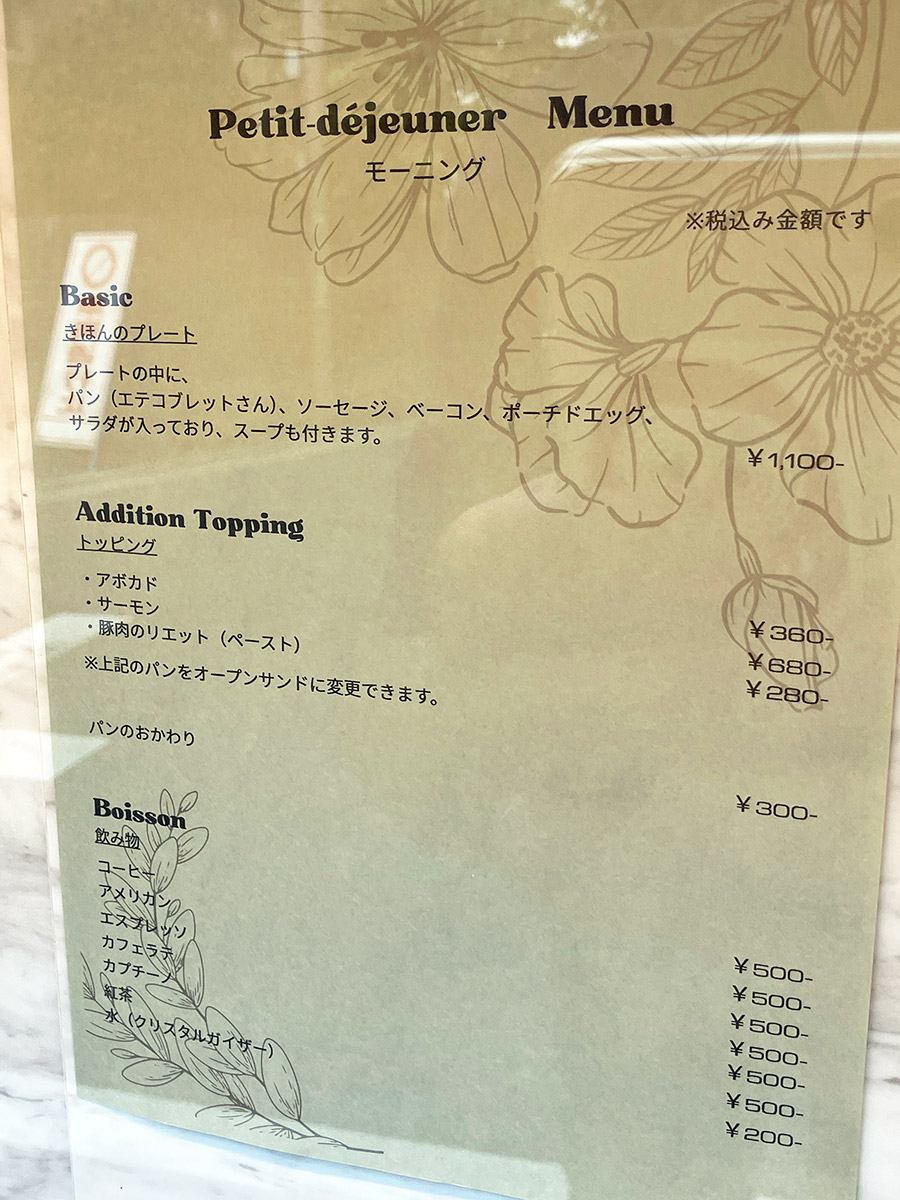 Petit-déjeuner Menu
モーニング
※税込み金額です
Basic
きほんのプレート
プレートの中に、
パン（エテコブレットさん）、ソーセージ、ベーコン、ポーチドエッグ、
サラダが入っており、スープも付きます。
¥1,100-
Addition Topping
トッピング
・アボカド ¥360-
・サーモン ¥680-
・豚肉のリエット（ペースト） ¥280-
※上記のパンをオープンサンドに変更できます。
パンのおかわり ¥300-
Boisson
飲み物
コーヒー ¥500-
アメリカン ¥500-
エスプレッソ ¥500-
カフェラテ ¥500-
カプチーノ ¥500-
紅茶 ¥500-
水（クリスタルガイザー） ¥200-